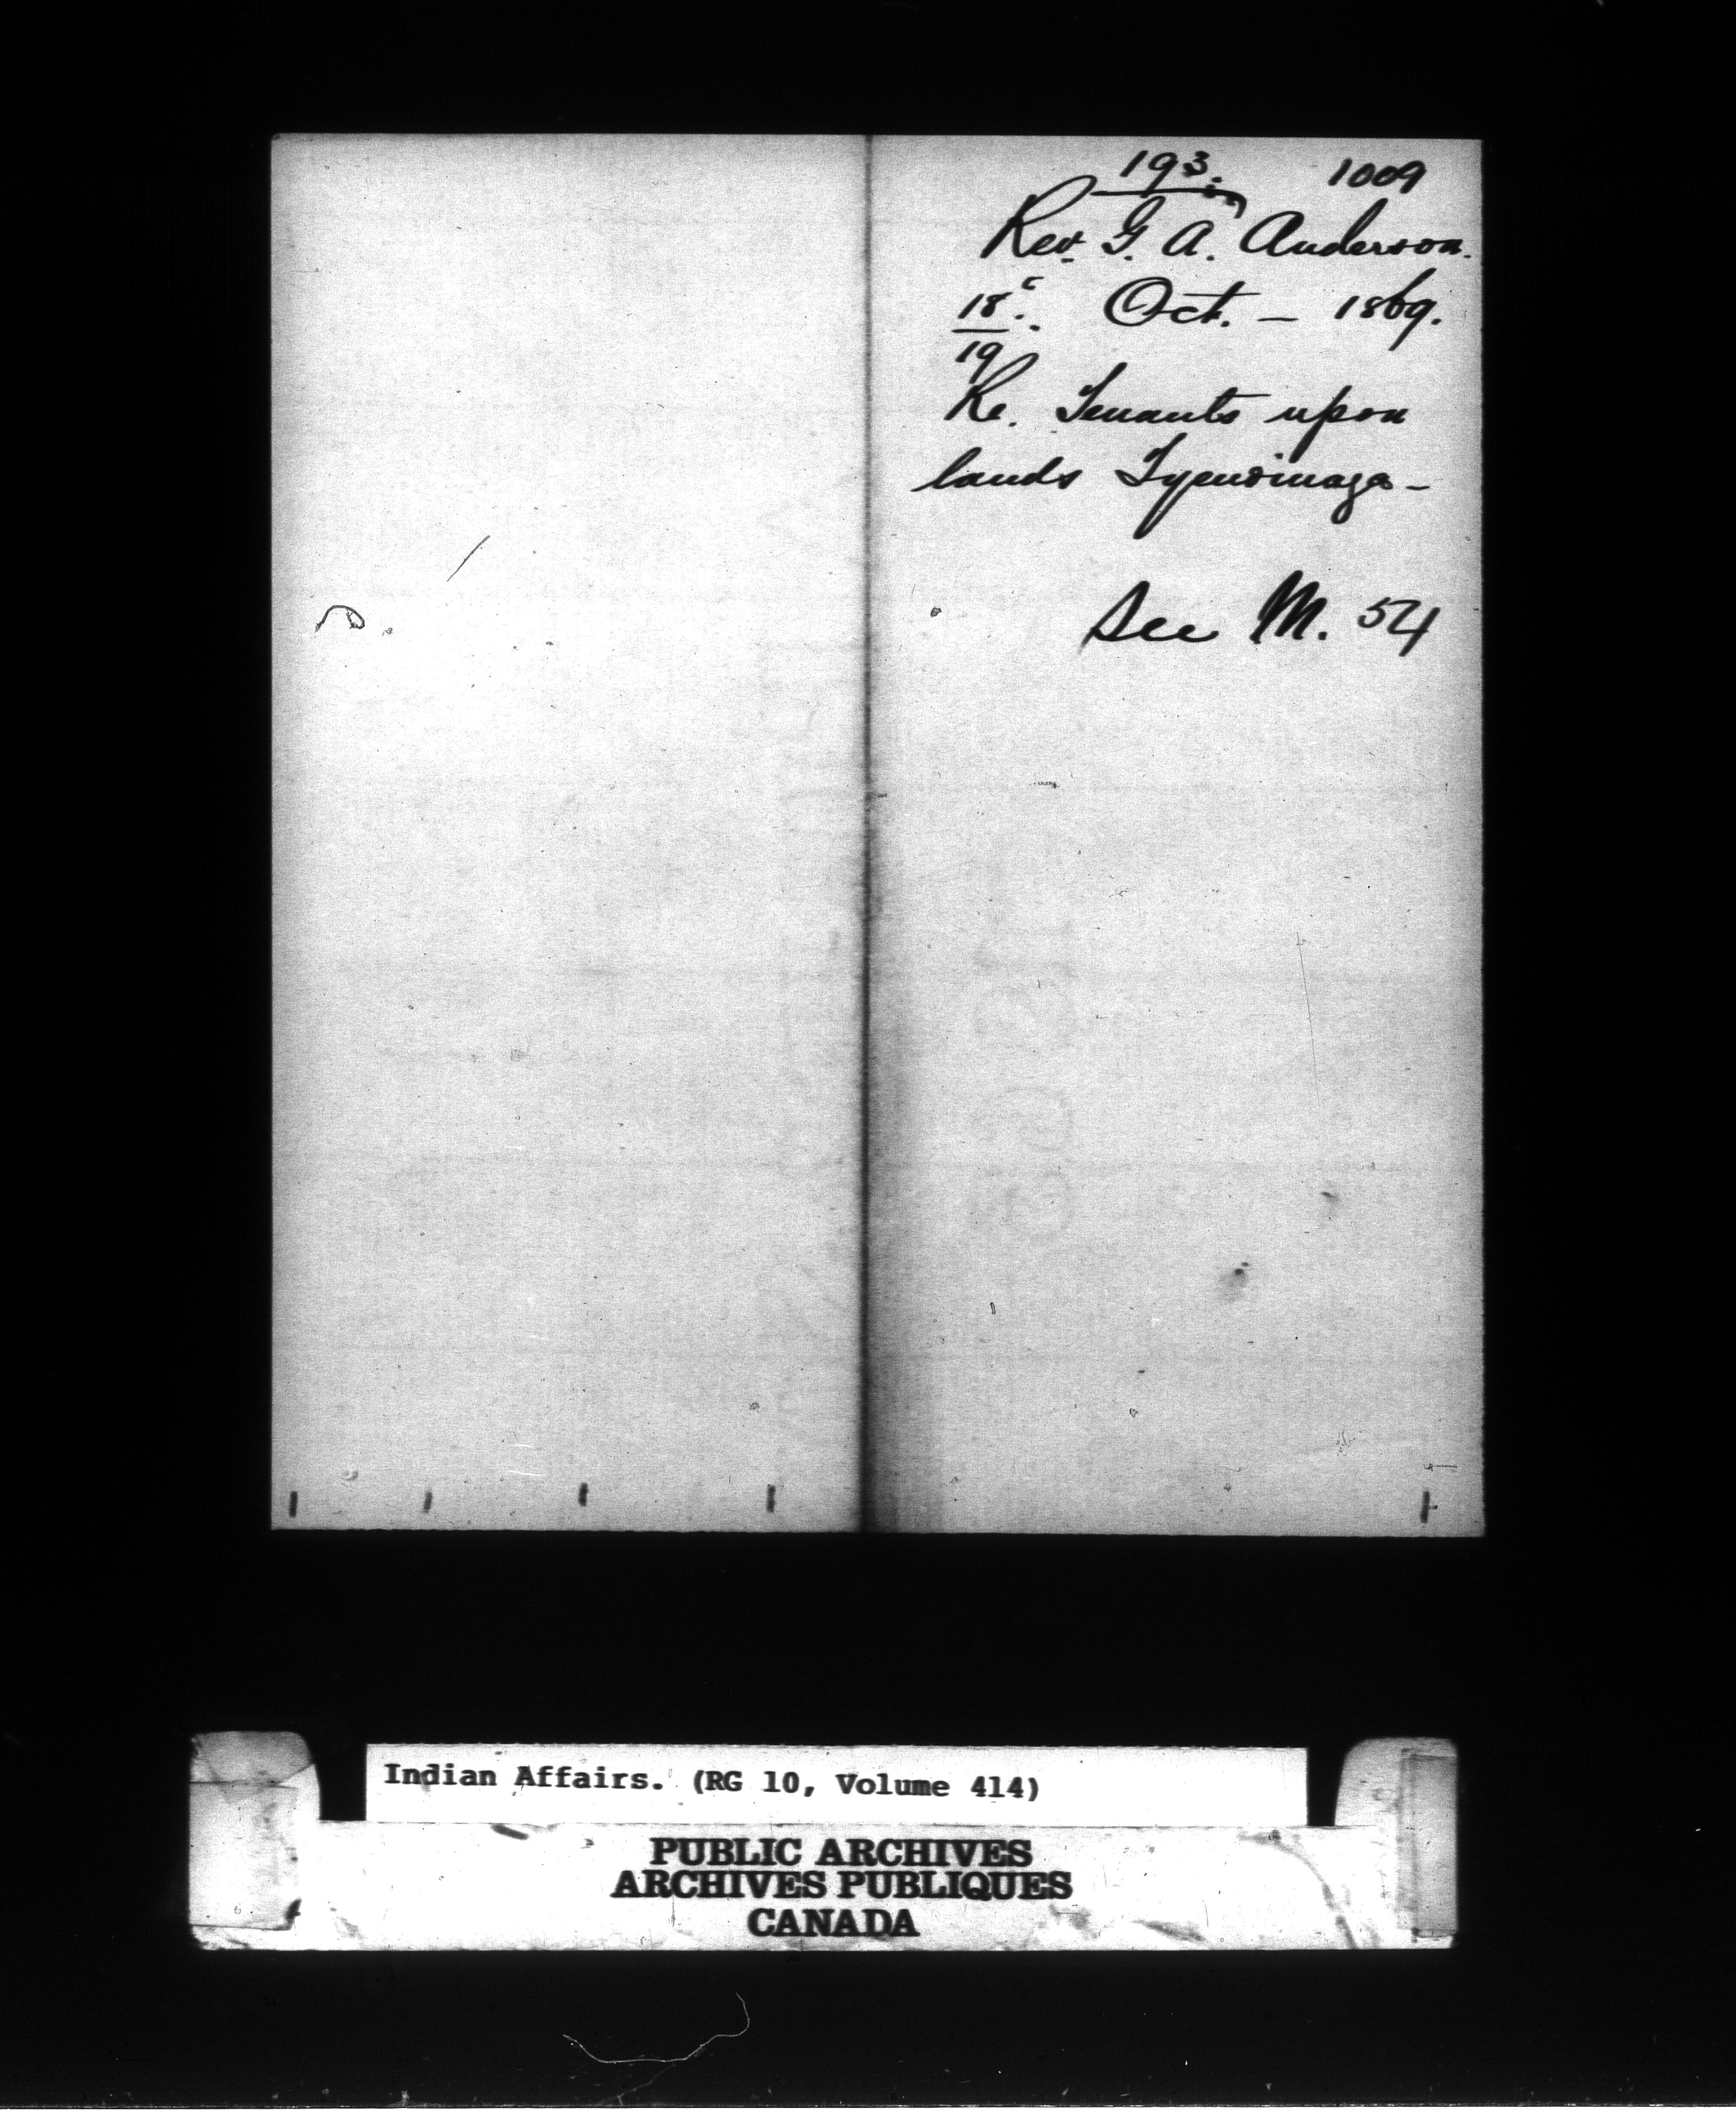 193. 1009
Rev. G. A. Anderson.
18. Oct. — 1869.
19
Re. Tenants upon
lands Tyendinaga –
See M. 54
Indian Affairs. (RG 10, Volume 414)
PUBLIC ARCHIVES
ARCHIVES PUBLIQUES
CANADA